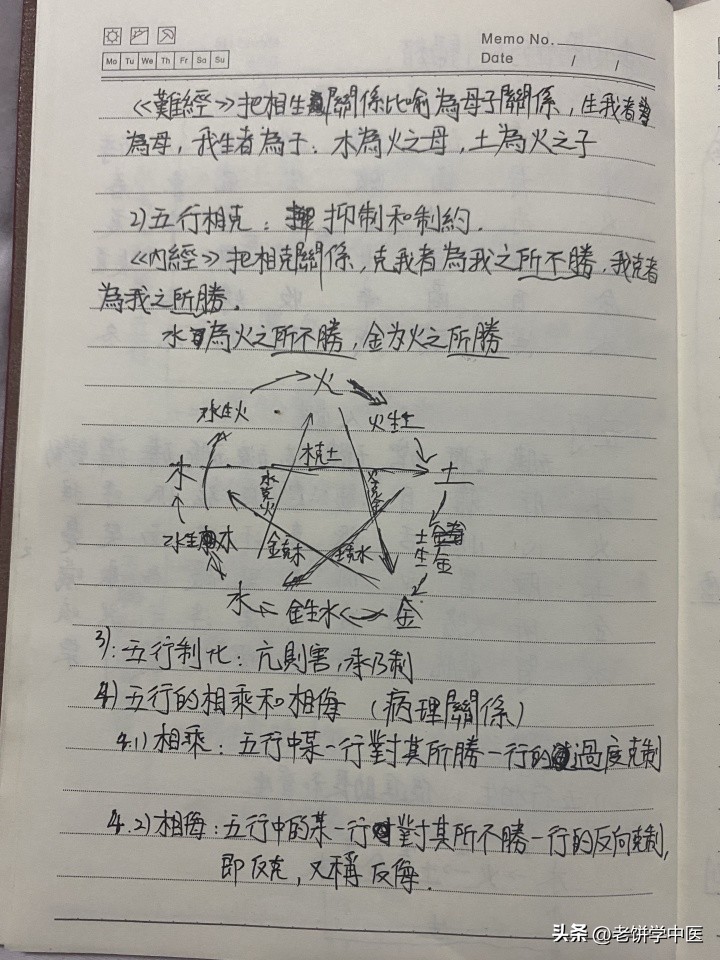 Memo No.
Mo Tu We Th Fr Sa Su
Date / /
《難經》把相生關係比喻為母子關係，生我者
為母，我生者為子：木為火之母，土為火之子
2)五行相克：抑制和制約.
《內經》把相克關係，克我者為我之所不勝，我克者
為我之所勝.
水為火之所不勝，金为火之所勝
火
木生火
火生土
木克土
木
土
水克火
火克金
水生木
金克木
土克水
土生金
水
金生水
金
3):五行制化：亢則害，承乃制
4)五行的相乘和相侮（病理關係）
4.1)相乘：五行中某一行對其所勝一行的過度克制
4.2)相侮：五行中的某一行對其所不勝一行的反向克制，
即反克，又稱反侮.
头条 @老饼学中医